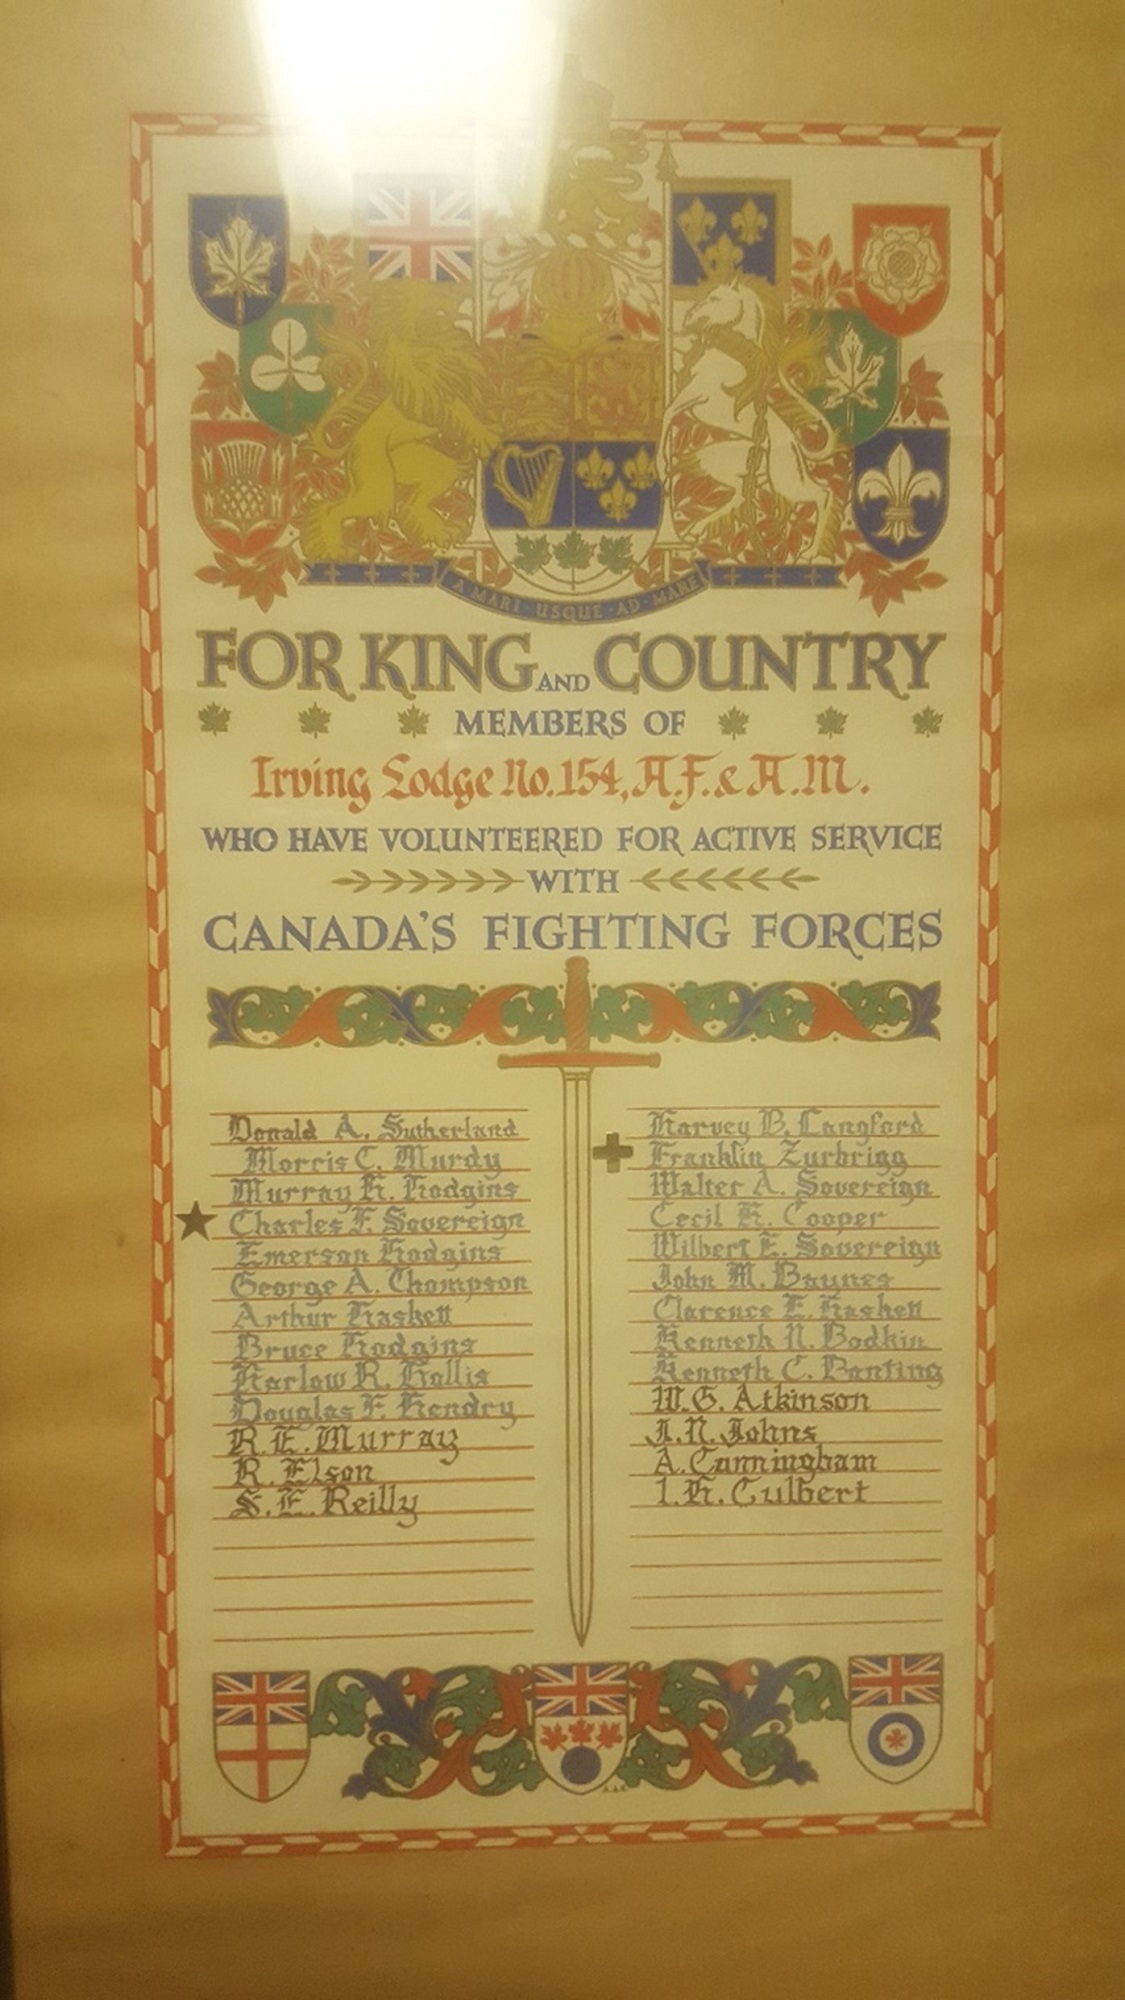 A MARI · USQUE · AD · MARE
FOR KING AND COUNTRY
MEMBERS OF
Irving Lodge No. 154, A.F. & A.M.
WHO HAVE VOLUNTEERED FOR ACTIVE SERVICE
WITH
CANADA'S FIGHTING FORCES
Donald A. Sutherland
Morris C. Murdy
Murray H. Hodgins
Charles F. Sovereign
Emerson Hodgins
George A. Thompson
Arthur Haskett
Bruce Hodgins
Harlow R. Hollis
Douglas F. Hendry
R. E. Murray
R. Elson
S. E. Reilly
Harvey B. Langford
Franklin Zurbrigg
Walter A. Sovereign
Cecil H. Cooper
Wilbert E. Sovereign
John M. Baynes
Clarence E. Haskett
Kenneth N. Bodkin
Kenneth C. Banting
W. G. Atkinson
J. N. Johns
A. Cunningham
I. H. Culbert